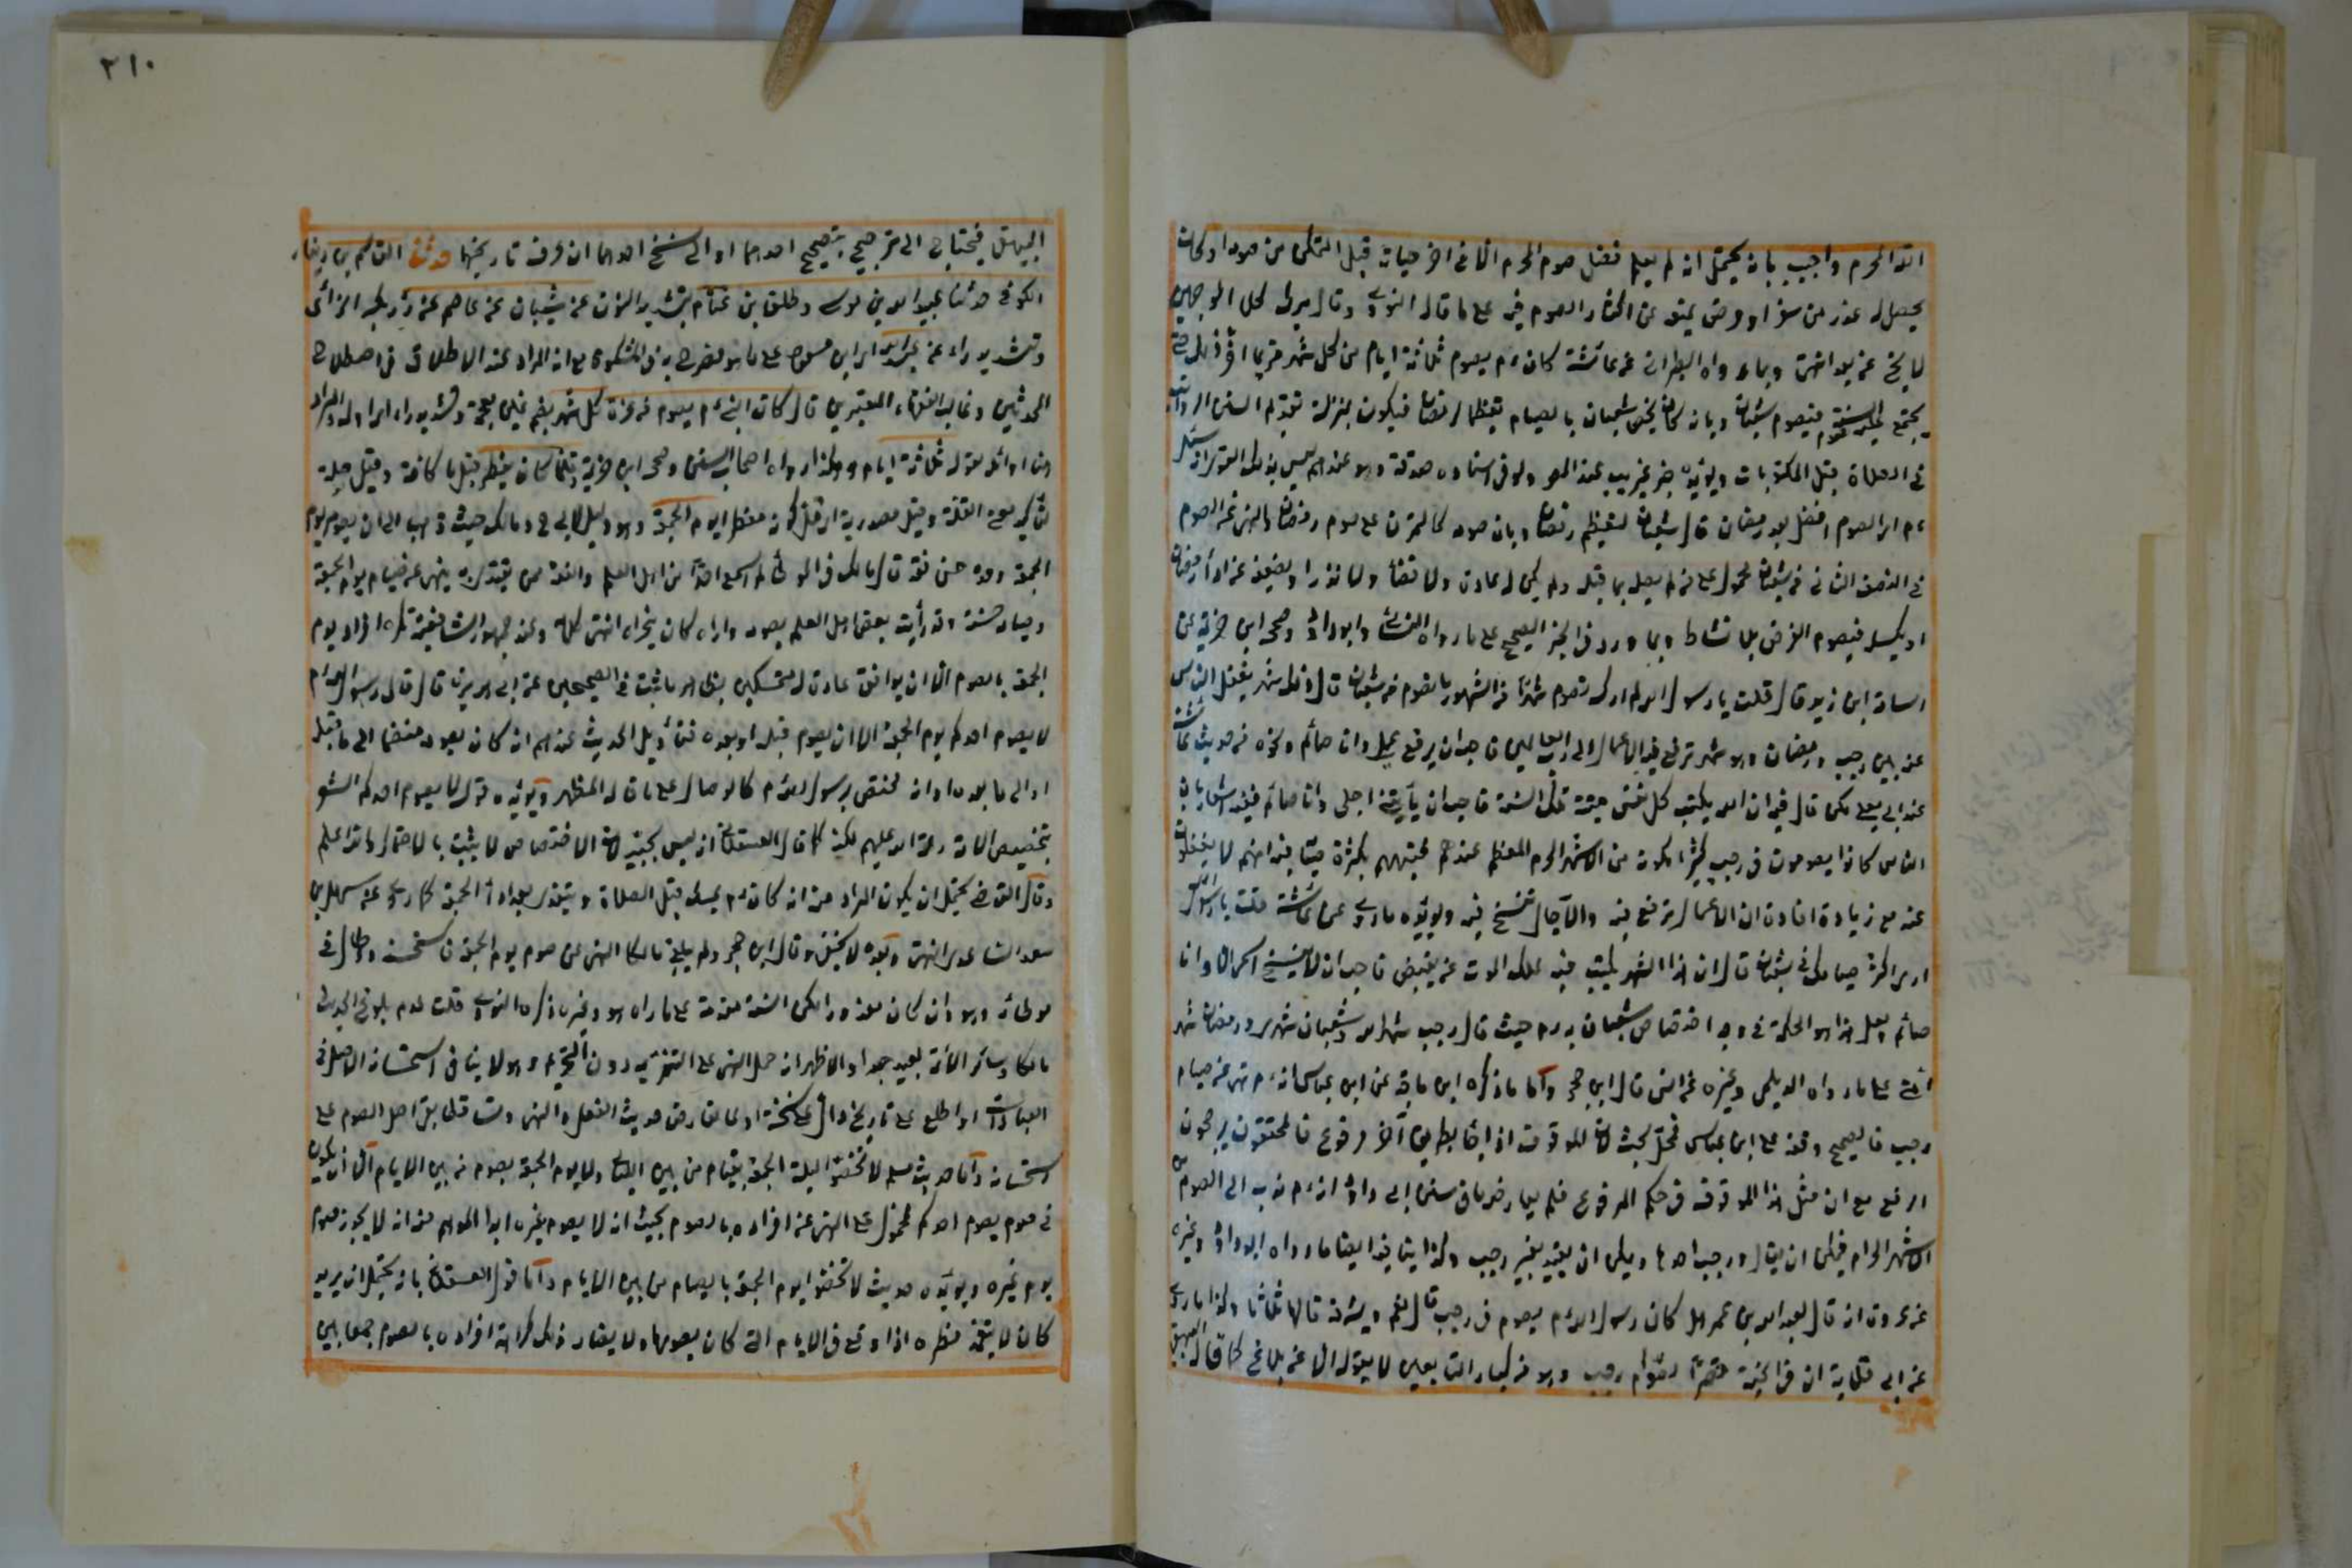 الله المحرم واجيب بانه يحتمل انه لم يعلم فضل صوم المحرم الا في اخر حياته قبل التمكن من صومه او كانت
يحصل له عذر من سفر او مرض يمنع عن اكثار الصوم فيه على ما قاله النووي وقال ميرك لكل الوجهين
لا يخ عن بعد انتهى وبما رواه الطبراني عن عائشة كان ءم يصوم ثلاثة ايام من كل شهر فربما اخر ذلك حتى
يجتمع عليه صوم السنة فيصوم شعبان وبانه كان يخص شعبان بالصيام تعظيما لرمضان فيكون بمنزلة تقديم السنن الرواتب
في الصلاة قبل المكتوبات ويؤيده خبر غريب عند المص ولو في اسناده صدقة وهو عندهم ليس بذلك القوي انه سئل
ءم اي الصوم افضل بعد رمضان قال شعبان لتعظيم رمضان وبان صومه كالتمرن على صوم رمضان والنهي عن الصوم
في النصف الثاني من شعبان محمول على من لم يصل بما قبله ولم يكن له عادة ولا قضاء ولا نذرا ويضعف عن اداء رمضان
او يكسل فيصوم الفرض بلا نشاط وبما ورد في الخبر الصحيح على ما رواه النسائي وابو داود وصححه ابن خزيمة عن
اسامة ابن زيد قال قلت يا رسول الله لم ارك تصوم شهرا من الشهور ما تصوم من شعبان قال ذلك شهر يغفل الناس
عنه بين رجب ورمضان وهو شهر ترفع فيه الاعمال الى رب العالمين فاحب ان يرفع عملي وانا صائم ونحوه من حديث عائشة
عند ابي يعلى لكن قال فيه ان الله يكتب كل نفس ميتة تلك السنة فاحب ان يأتيني اجلي وانا صائم ففيه اشعار بان
الناس كانوا يصومون في رجب كثيرا لكونه من الاشهر الحرم المعظم عندهم
عنه مع زيادة افادة ان الاعمال ترفع فيه والآجال تنسخ فيه ويؤيده ما روي عن عائشة قلت يا رسول الله
ارى اكثر صيامك في شعبان قال ان هذا الشهر يكتب فيه لملك الموت من يقبض فاحب ان لا ينسخ اسمي الا وانا
صائم ولعل هذا هو الحكمة في وجه اختصاص شعبان به ءم حيث قال رجب شهر الله وشعبان شهري ورمضان شهر
امتي على ما رواه الديلمي وغيره عن انس قال ابن حجر واما ما ذكره ابن ماجة عن ابن عباس انه ءم نهى عن صيام
رجب فالصحيح وقفه على ابن عباس فمحل بحث لان الموقوف اذا جاء بطريق آخر مرفوع فالمحققون يرجحون
الرفع مع ان مثل هذا الموقوف في حكم المرفوع فلم يعارضه ما في سنن ابي داود انه ءم ندب الى الصوم من
الاشهر الحرام فيمكن ان يقال ورجب احدها ويمكن ان يقيد بغير رجب وكذا ينافيه ايضا ما رواه ابو داود وغيره
عن عروة انه قال لعبد الله بن عمر هل كان رسول الله ءم يصوم في رجب قال نعم ويشرفه قالها ثلاثا وكذا ما روي
عن ابي قلابة ان في الجنة قصرا لصوام رجب وهو من كبار التابعين لا يقوله الا عن بلاغ كما قاله البيهقي
٣١٠
البيهقي فيحتاج الى ترجيح بتصحيح احدهما او الى نسخ احدهما ان عرف تاريخهما حدثنا القاسم بن دينار
الكوفي حدثنا عبيد الله بن موسى وطلق بن غنام بتشديد النون عن شيبان عن عاصم عن زر بكسر الزائي
وتشديد راء عن عبد الله اي ابن مسعود على ما هو مصرح به في المشكوة مع انه المراد عند الاطلاق في اصطلاح
المحدثين وغالب الفقهاء المعتبرين قال كان النبي ءم يصوم من غرة كل شهر بضم غين معجمة وتشديد راء اي اوله والمراد
من اوائله بقوله ثلاثة ايام وكذا رواه اصحاب السنن وصححه ابن خزيمة وقلما كان يفطر قيل ما كافة وقيل صلة
لتأكيد معنى القلة وقيل مصدرية اي قل كونه مفطرا يوم الجمعة وهو دليل لابي ح ومالك حيث ذهبا الى ان صوم يوم
الجمعة وحده حسن فقد قال مالك في الموطأ لم اسمع احدا من اهل العلم والفقه ممن يقتدى به ينهى عن صيام يوم الجمعة
وصيامه حسن وقد رأيت بعض اهل العلم يصومه واراه كان يتحراه انتهى كلامه وعند جمهور الشافعية يكره افراد يوم
الجمعة بالصوم الا ان يوافق عادة له متمسكين بظاهر ما ثبت في الصحيحين عن ابي هريرة قال قال رسول الله ءم
لا يصوم احدكم يوم الجمعة الا ان يصوم قبله او بعده فتأويل الحديث عندهم انه كان يصومه منضما الى ما قبله
او الى ما بعده او انه مختص برسول الله ءم كالوصال على ما قاله المظهر ويؤيده قوله لا يصوم احدكم المشعر
بتخصيص الامة رحمة الله عليهم لكنه كما قال العسقلاني انه ليس بجيد لان الاختصاص لا يثبت بالاحتمال والله اعلم
وقال القاضي يحتمل ان يكون المراد منه انه كان ءم يمسك قبل الصلاة ولا يتغدى الا بعد اداء الجمعة كما روي عن سهل بن
سعد الساعدي انتهى وبعده لا يخفى وقال ابن حجر ولم يبلغ مالكا النهي عن صوم يوم الجمعة فاستحسنه واطال في
موطائه وهو وان كان معذورا لكن السنة مقدمة على ما رآه هو وغيره ذكره النووي قلت عدم بلوغ الحديث
مالكا وسائر الائمة بعيد جدا والاظهر انه حمل النهي على التنزيه دون التحريم وهو لا ينافي استحسانه الاصل في
العبادات او اطلع على تاريخ دال على نسخه او لما تعارض حديث الفعل والنهي وتساقطا بقي اصل الصوم على
استحسانه واما حديث مسلم لا تخصوا ليلة الجمعة بقيام من بين الليالي ولا يوم الجمعة بصوم من بين الايام الا ان يكون
في صوم يصوم احدكم فمحمول على النهي عن افراده بالصوم بحيث انه لا يصوم غيره ابدا الموهم منه انه لا يجوز صوم
يوم غيره ويؤيده حديث لا تخصوا يوم الجمعة بالصيام من بين الايام واما قول العسقلاني بانه يحتمل ان يريد
كان لا يتعمد فطره اذا وقع في الايام التي كان يصومها ولا يضاد ذلك كراهة افراده بالصوم جمعا بين